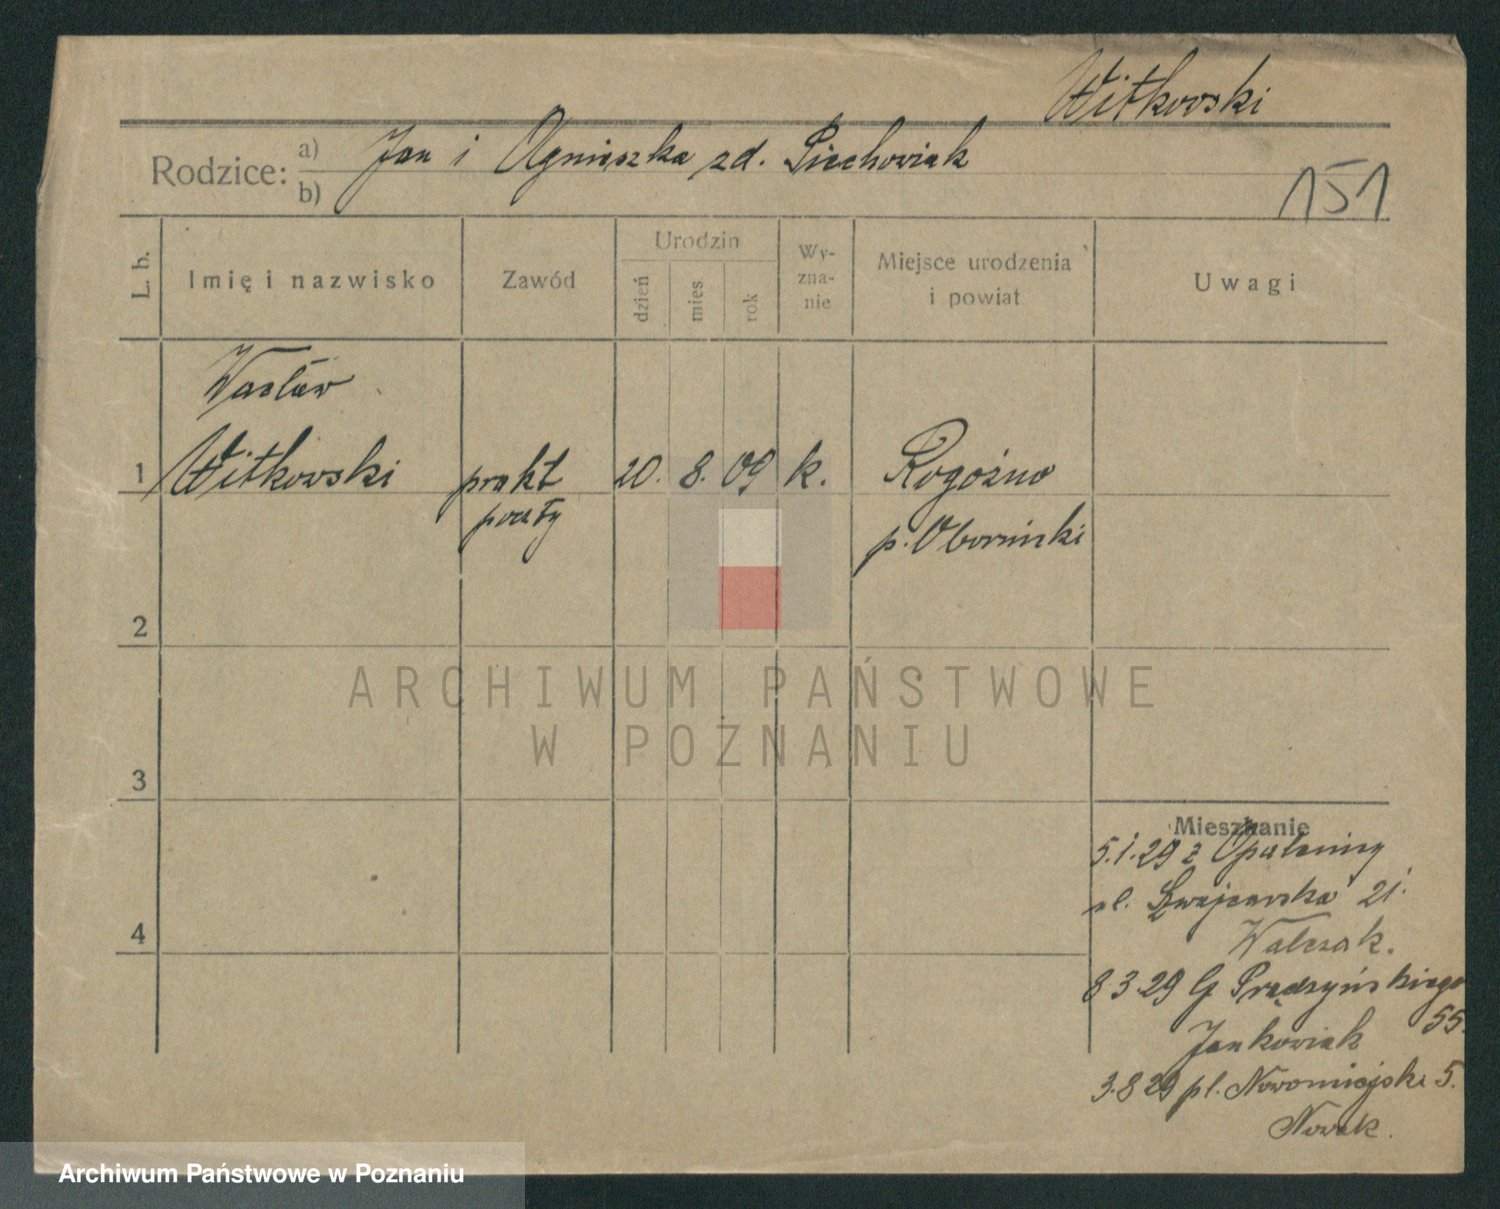 Witkowski
Rodzice: a) Jan i Agnieszka zd. Piechowiak
b)
151
L. b.
Imię i nazwisko
Zawód
Urodzin
dzień
mies
rok
Wy-
zna-
nie
Miejsce urodzenia
i powiat
Uwagi
Wacław
1 Witkowski prakt 20. 8. 09 k. Rogoźno
poczty p. Obornicki
2
ARCHIWUM PAŃSTWOWE
W POZNANIU
3
Mieszkanie
5.1.29 z Opalenicy
ul. Szwajcarska 21.
Walczak.
4
8 3.29 G Prądzyńskiego
55.
Jankowiak
3.8 29 pl. Nowomiejski 5.
Nowak.
Archiwum Państwowe w Poznaniu